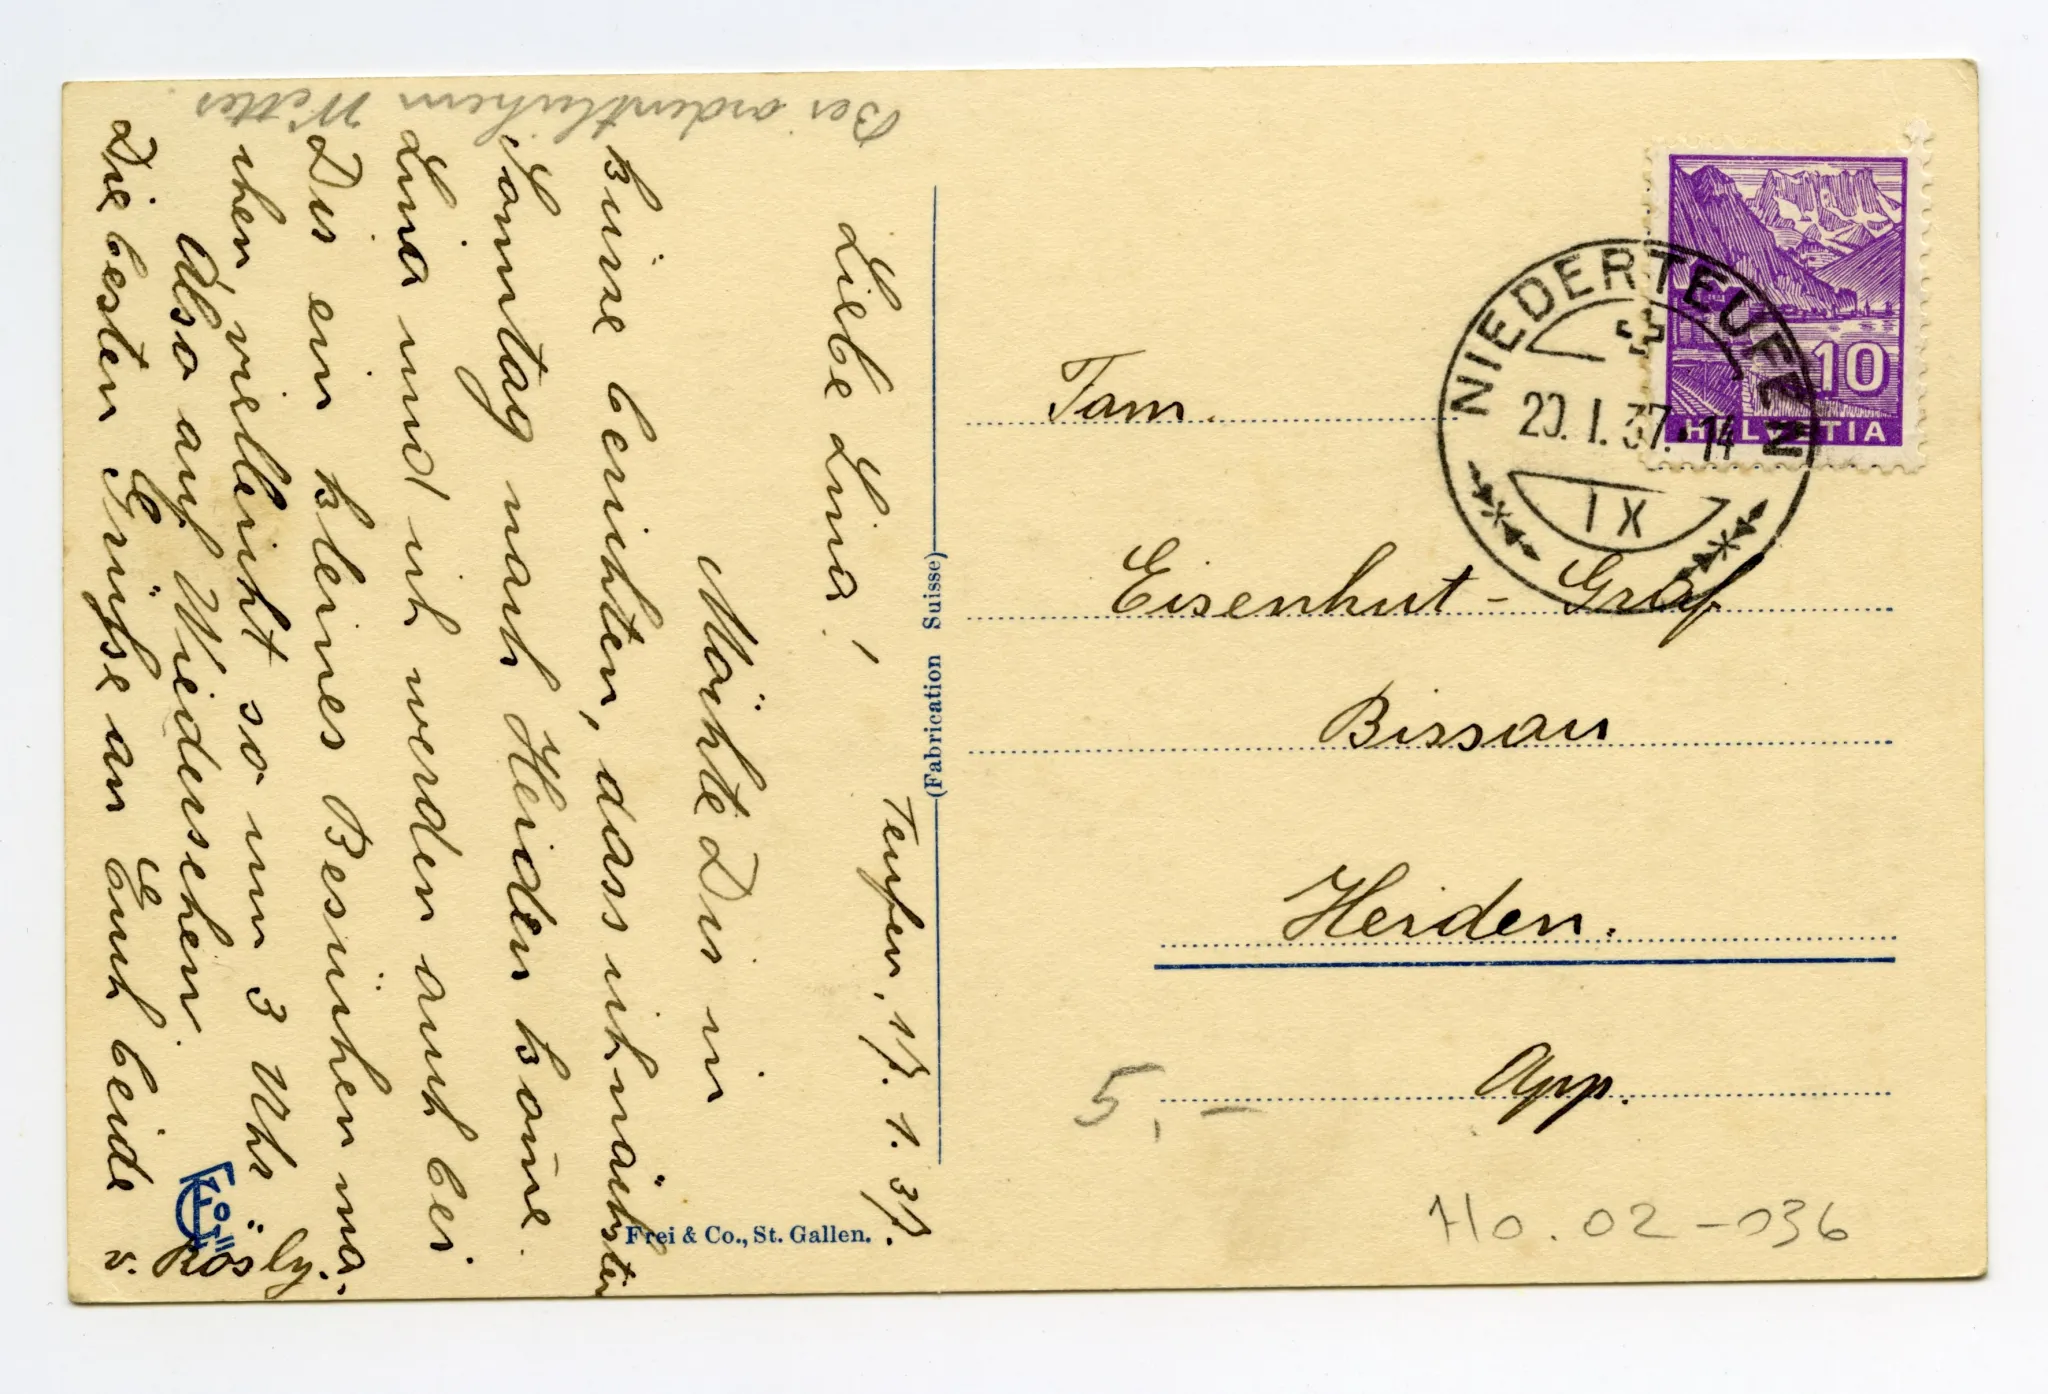 Teufen, 17. 1. 37.
Liebe Lina!
Möchte Dir in
Kürze berichten, dass ich nächsten
Sonntag nach Heiden kome.
Lina und ich werden auch bei
Dir ein kleines Besüchen ma-
chen vielleicht so um 3 Uhr
Also auf Wiedersehen.
Die besten Grüsse an Euch beide
v. Rösly.
Bei ordentlichem Wetter
(Fabrication Suisse)
Frei & Co., St. Gallen.
NIEDERTEUFEN
20. I. 37. 14
IX
10
HELVETIA
Fam.
Eisenhut-Graf
Bissau
Heiden.
App.
5,-
Ho. 02-036